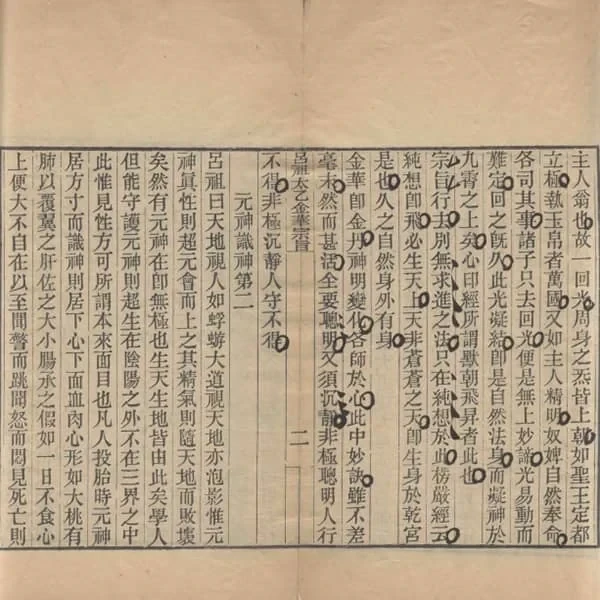 主人翁也故一回光周身之炁皆上朝如聖王定都
立極執玉帛者萬國又如主人精明奴婢自然奉命
各司其事諸子只去回光便是無上妙諦光易動而
難定回之既久此光凝結即是自然法身而凝神於
九霄之上矣心印經所謂默朝飛昇者此也
宗旨行去別無求進之法只在純想於此楞嚴經云
純想即飛必生天上天非蒼蒼之天即生身於乾宮
是也久之自然身外有身
金華即金丹神明變化各師於心此中妙訣雖不差
毫末然而甚活全要聰明又須沉靜非極聰明人行
呂祖太乙金華宗旨
二
不得非極沉靜人守不得
元神識神第二
呂祖曰天地視人如蜉蝣大道視天地亦泡影惟元
神眞性則超元會而上之其精氣則隨天地而敗壞
矣然有元神在即無極也生天生地皆由此矣學人
但能守護元神則超生在陰陽之外不在三界之中
此惟見性方可所謂本來面目也凡人投胎時元神
居方寸而識神則居下心下面血肉心形如大桃有
肺以覆翼之肝佐之大小腸承之假如一日不食心
上便大不自在以至聞驚而跳聞怒而悶見死亡則